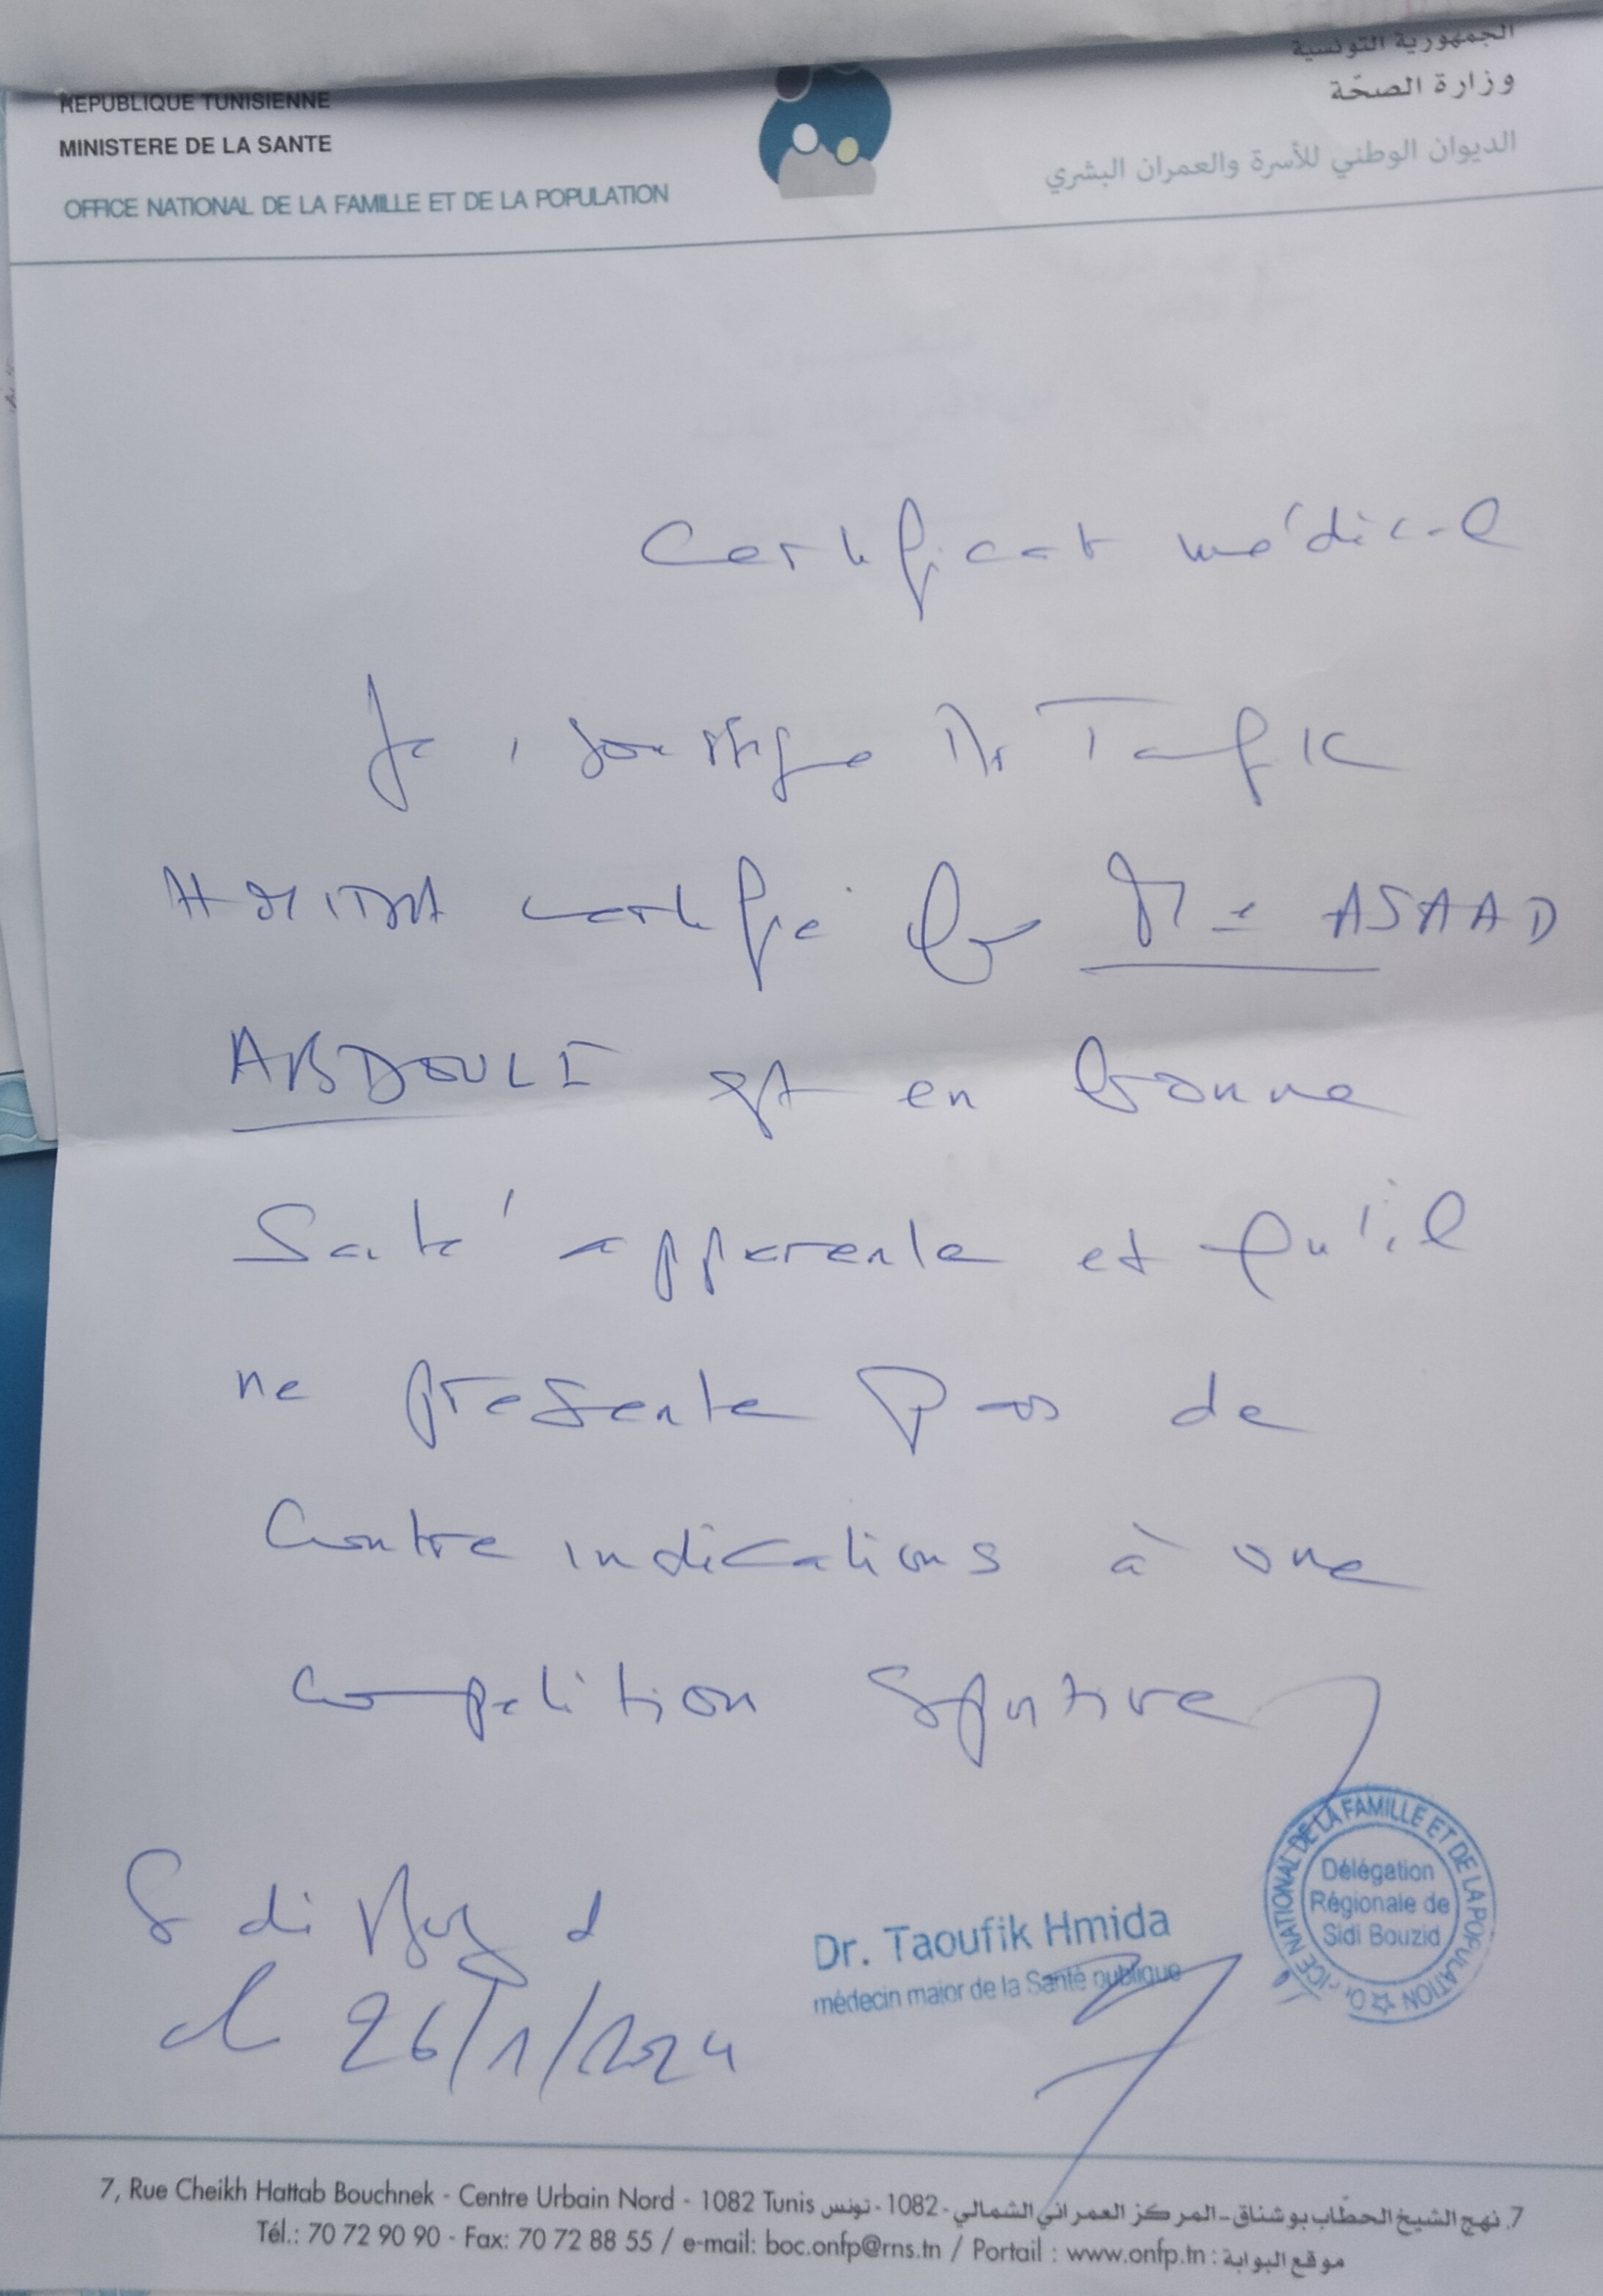 REPUBLIQUE TUNISIENNE
MINISTERE DE LA SANTE
OFFICE NATIONAL DE LA FAMILLE ET DE LA POPULATION
الجمهورية التونسية
وزارة الصحّة
الديوان الوطني للأسرة والعمران البشري
Certificat médical
Je, soussigné Dr Taufik
HMIDA certifie que Mr ASAAD
ABDOULI est en bonne
Santé apparente et qu'il
ne présente pas de
contre indications à une
compétition Sportive
Sidi Bouzid
le 26/1/2024
Dr. Taoufik Hmida
médecin major de la Santé publique
OFFICE NATIONAL DE LA FAMILLE ET DE LA POPULATION
Délégation
Régionale de
Sidi Bouzid
7, Rue Cheikh Hattab Bouchnek - Centre Urbain Nord - 1082 Tunis 7, نهج الشيخ الحطّاب بوشناق - المركز العمراني الشمالي - 1082 - تونس
Tél.: 70 72 90 90 - Fax: 70 72 88 55 / e-mail: boc.onfp@rns.tn / Portail : www.onfp.tn : موقع البوابة